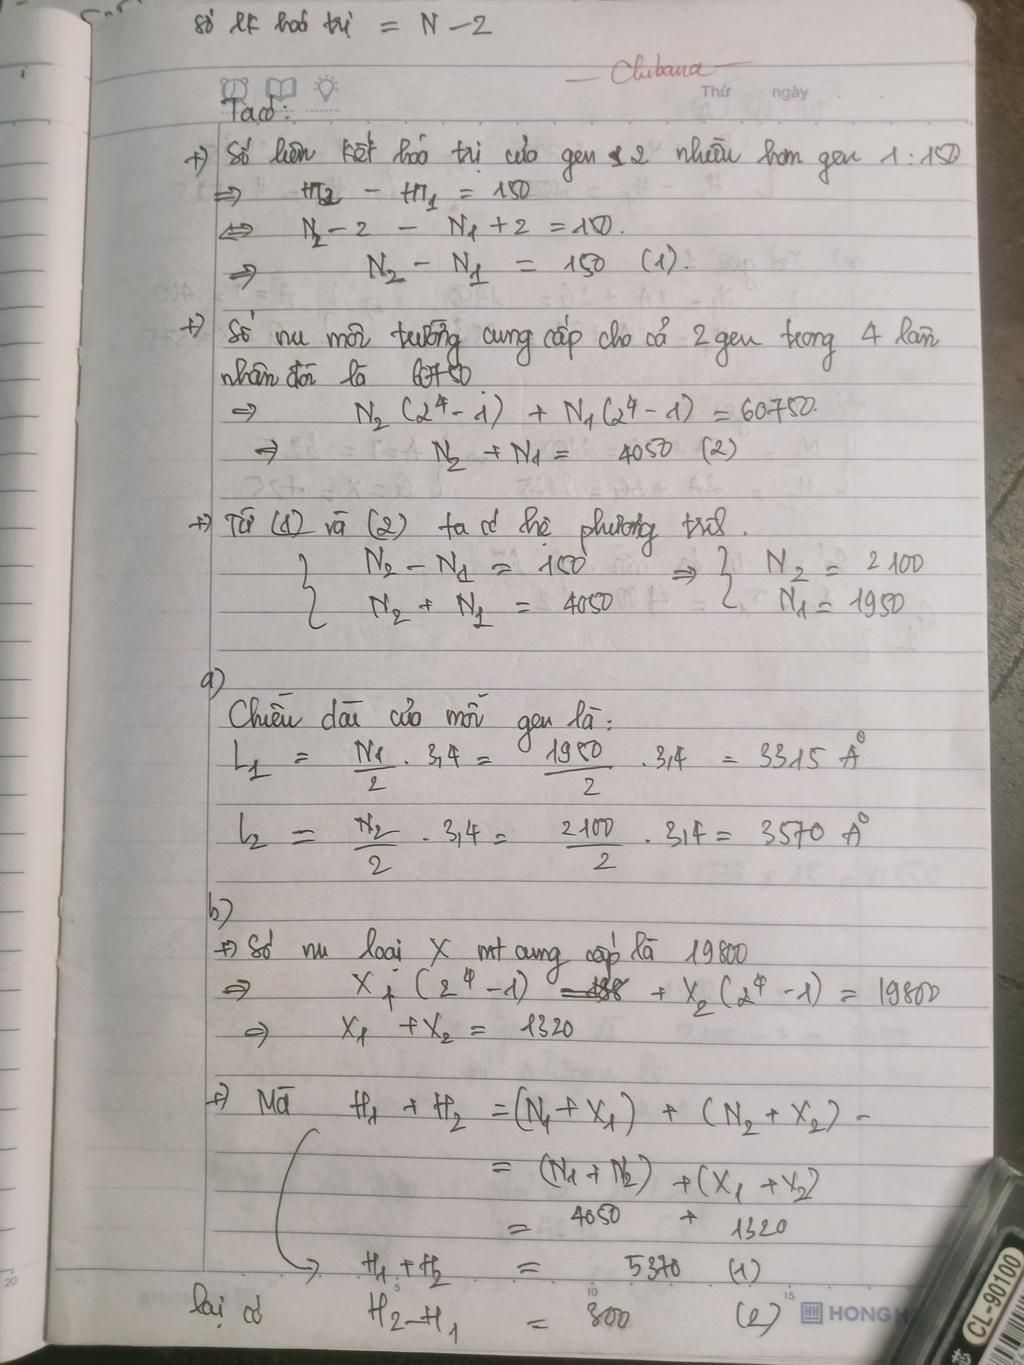 số lk hoá trị = N - 2
Chibana
Thứ ngày
Ta có:
+) Số liên kết hoá trị của gen 2 nhiều hơn gen 1: 150
⇒ HT2 - HT1 = 150
⇔ N2 - 2 - N1 + 2 = 150.
⇒ N2 - N1 = 150 (1).
+) Số nu môi trường cung cấp cho cả 2 gen trong 4 lần
nhân đôi là 60750
⇒ N2 (2^4 - 1) + N1 (2^4 - 1) = 60750.
⇒ N2 + N1 = 4050 (2)
+) Từ (1) và (2) ta có hệ phương trình.
{ N2 - N1 = 150 ⇒ { N2 = 2100
N2 + N1 = 4050 N1 = 1950
a)
Chiều dài của mỗi gen là:
L1 = N1/2 . 3,4 = 1950/2 . 3,4 = 3315 Å
L2 = N2/2 . 3,4 = 2100/2 . 3,4 = 3570 Å
b)
+) Số nu loại X mt cung cấp là 19800
⇒ X1 (2^4 - 1) + X2 (2^4 - 1) = 19800
⇒ X1 + X2 = 1320
+) Mà H1 + H2 = (N1 + X1) + (N2 + X2) =
= (N1 + N2) + (X1 + X2)
= 4050 + 1320
H1 + H2 = 5370 (1)
lại có H2 - H1 = 300 (2)
20 5 10 15
HONG H
CL-90100